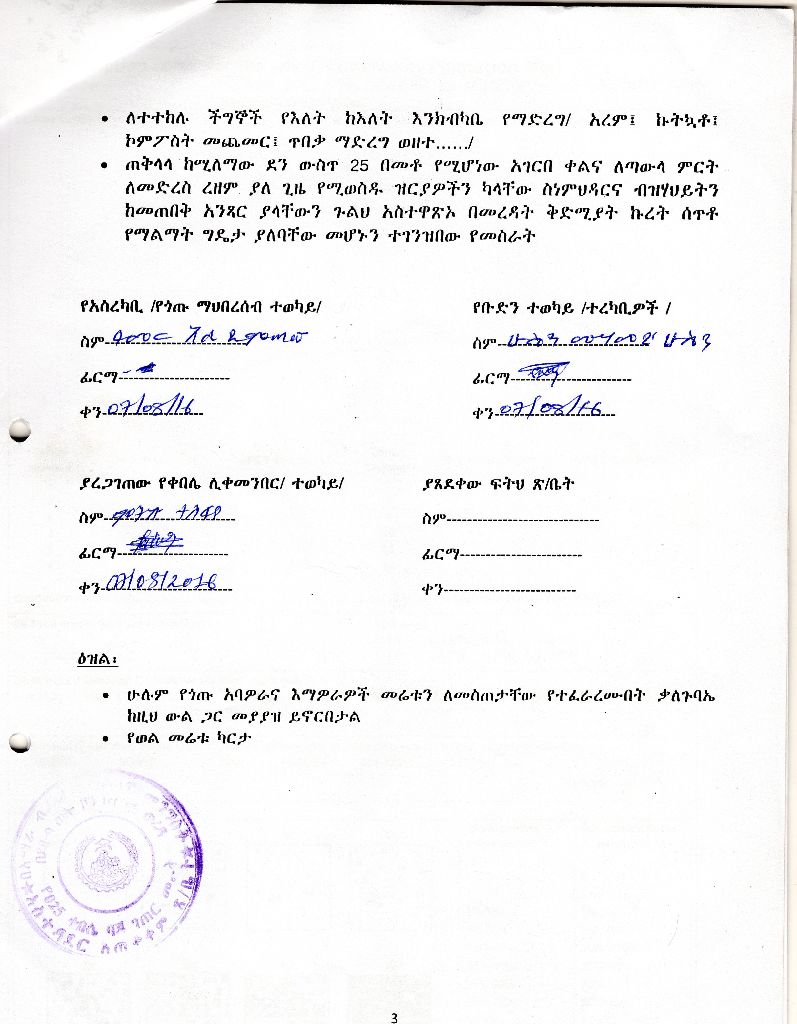 • ለተተከሉ ችግኞች የእለት ከእለት እንክብካቤ የማድረግ/ አረም፤ ኩትኳቶ፤
ኮምፖስት መጨመር፤ ጥበቃ ማድረግ ወዘተ....../
• ጠቅላላ ከሚለማው ደን ውስጥ 25 በመቶ የሚሆነው አገርበ ቀልና ለጣውላ ምርት
ለመድረስ ረዘም ያለ ጊዜ የሚወስዱ ዝርያዎችን ካላቸው ስነምህዳርና ብዝሃህይትን
ከመጠበቅ አንጻር ያላቸውን ጉልህ አስተዋጽኦ በመረዳት ቅድሚያት ኩረት ሰጥቶ
የማልማት ግዴታ ያለባቸው መሆኑን ተገንዝበው የመስራት
የአስረካቢ /የጎጡ ማህበረሰብ ተወካይ/
ስም
ፊርማ
ቀን 07/08/16
የቡድን ተወካይ /ተረካቢዎች /
ስም
ፊርማ
ቀን 07/08/16
ያረጋገጠው የቀበሌ ሊቀመንበር/ ተወካይ/
ስም
ፊርማ
ቀን 07/08/2016
ያጸደቀው ፍትህ ጽ/ቤት
ስም
ፊርማ
ቀን
ዕዝል፡
• ሁሉም የጎጡ አባዎራና እማዎራዎች መሬቱን ለመስጠታቸው የተፈራረሙበት ቃለጉባኤ
ከዚህ ውል ጋር መያያዝ ይኖርበታል
• የወል መሬቱ ካርታ
3